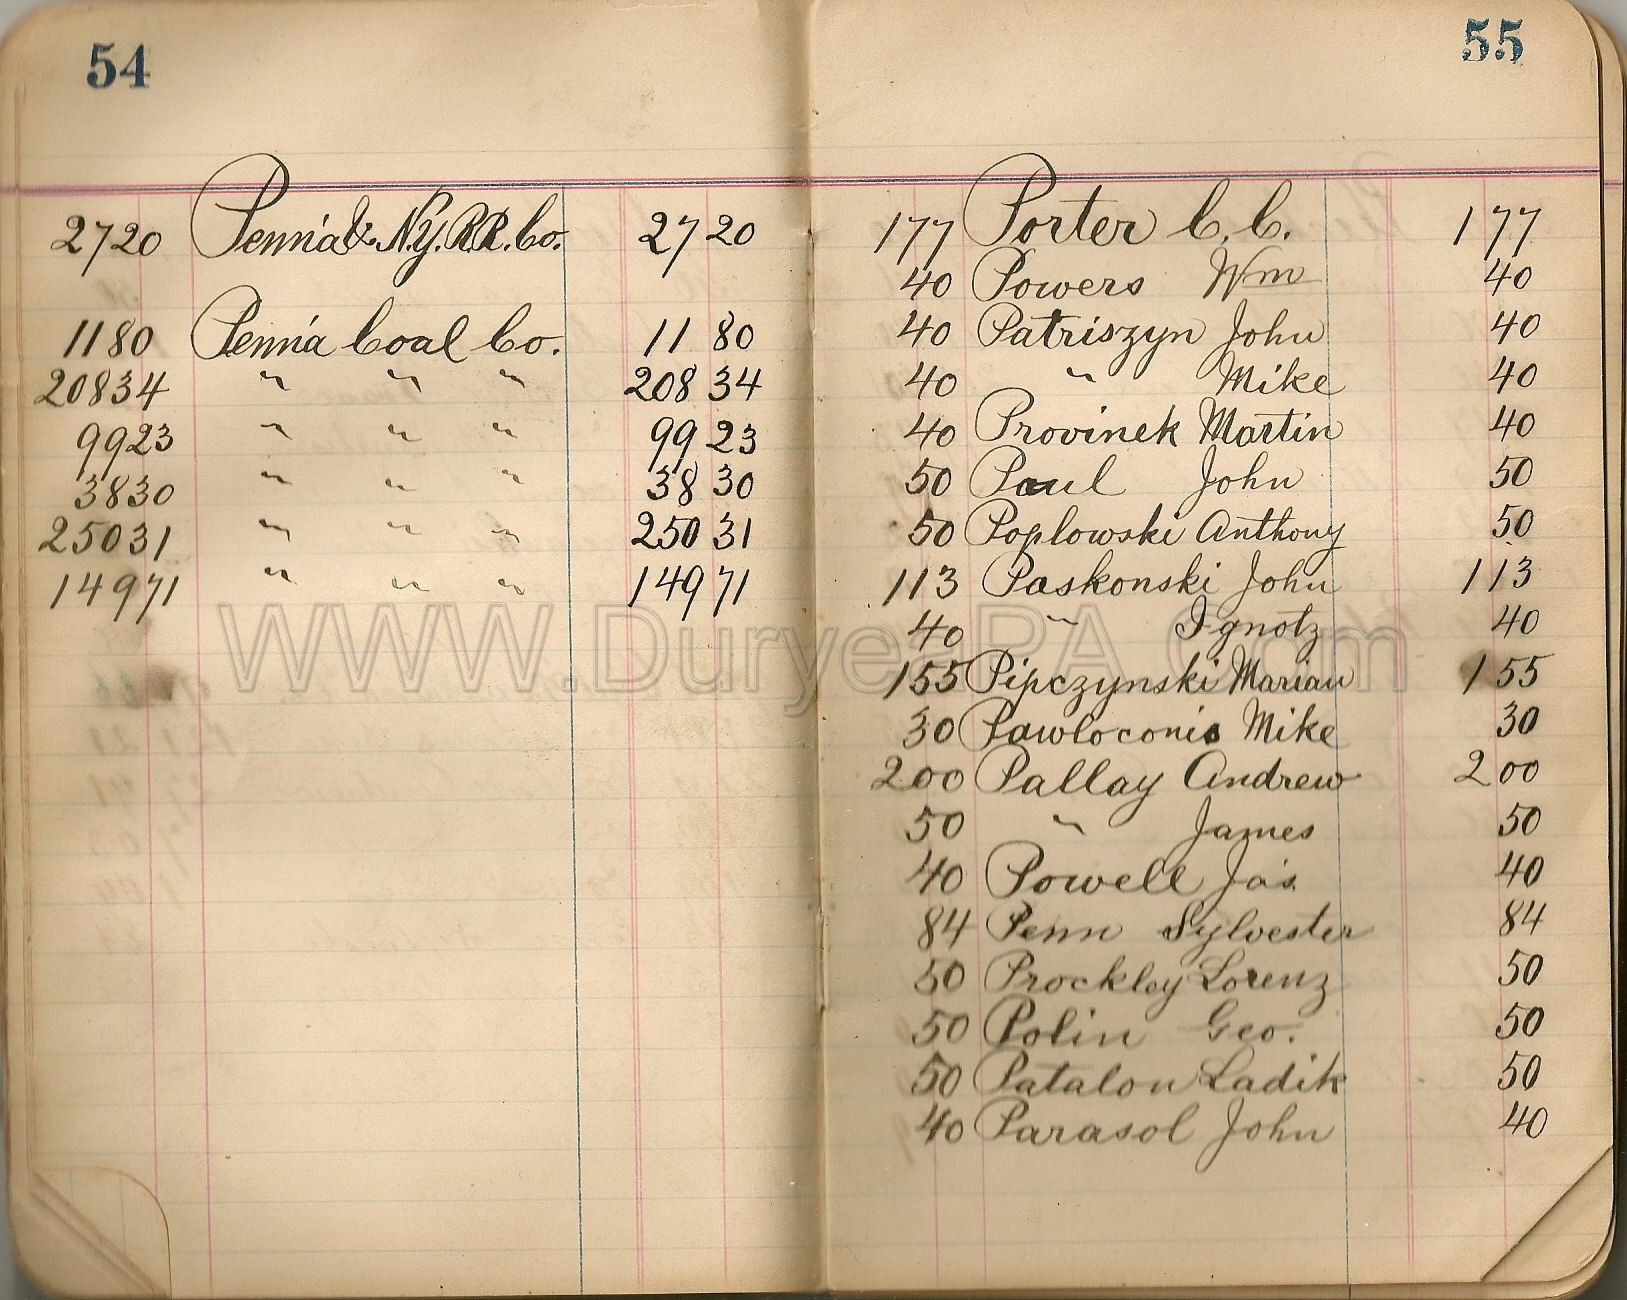 54
2720 Penn'a & N.Y. R.R. Co. 27 20
1180 Penn'a Coal Co. 11 80
20834 " " " 208 34
9923 " " " 99 23
3830 " " " 38 30
25031 " " " 250 31
14971 " " " 149 71
WWW.DuryeaPA.Com
55
177 Porter C. C. 1 77
40 Powers Wm 40
40 Patriszyn John 40
40 " Mike 40
40 Provinek Martin 40
50 Paul John 50
50 Poplowski Anthony 50
113 Paskonski John 1 13
40 " Ignotz 40
155 Pipczynski Marian 1 55
30 Pawloconis Mike 30
200 Pallay Andrew 2 00
50 " James 50
40 Powell Ja's. 40
84 Penn Sylvester 84
50 Prockley Lorenz 50
50 Polin Geo. 50
50 Patalon Ladik 50
40 Parasol John 40